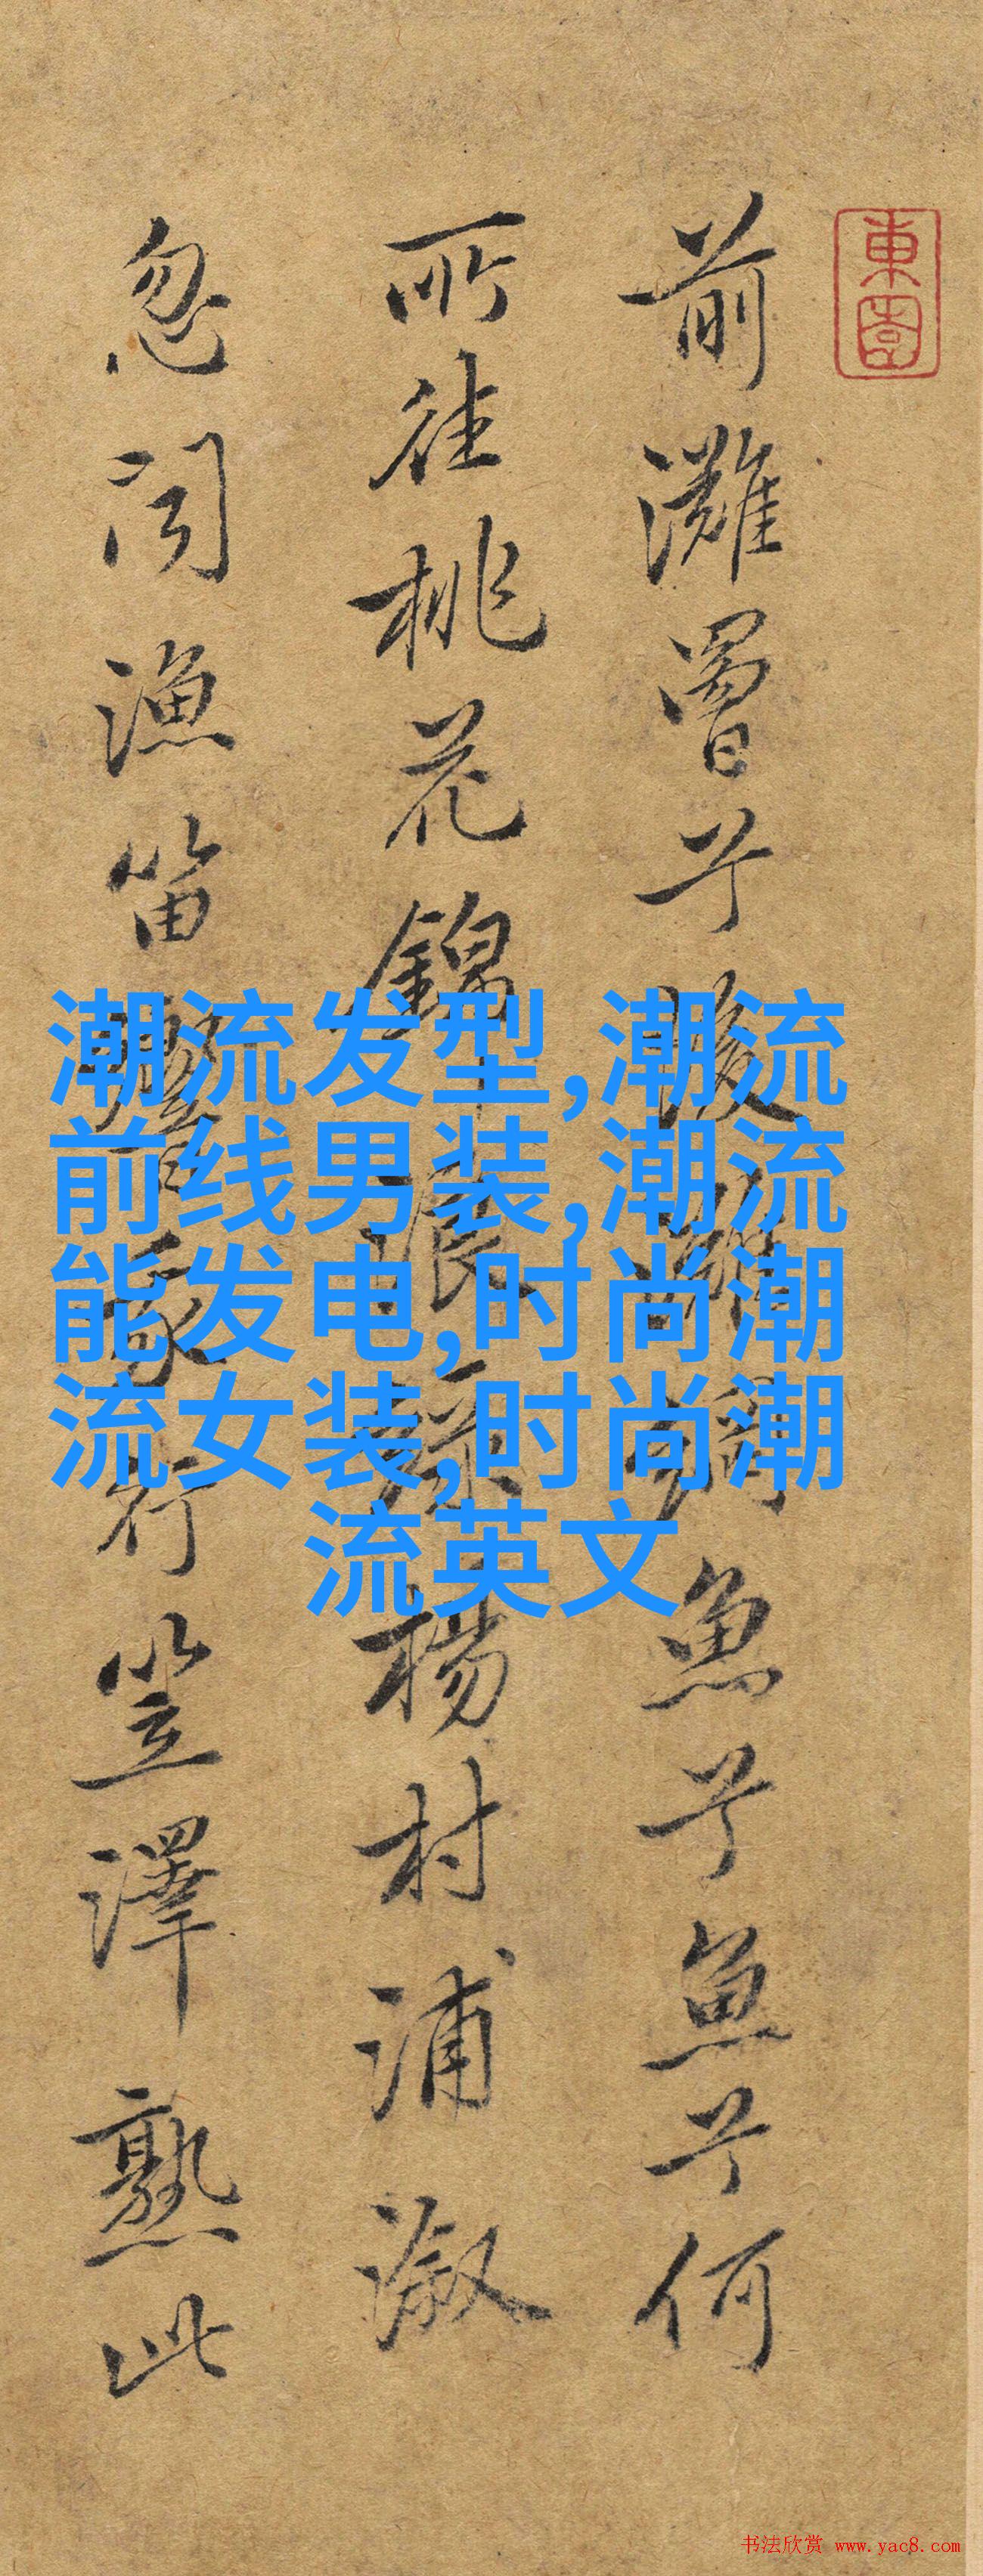 東園
前灘罾子後灘綱魚子魚子何
所往桃花錦浪緑楊村浦溆
忽聞漁笛聲我行笠澤熟此
潮流发型,潮流
前线男装,潮流
能发电,时尚潮
流女装,时尚潮
流英文
书法欣赏 www.yac8.com